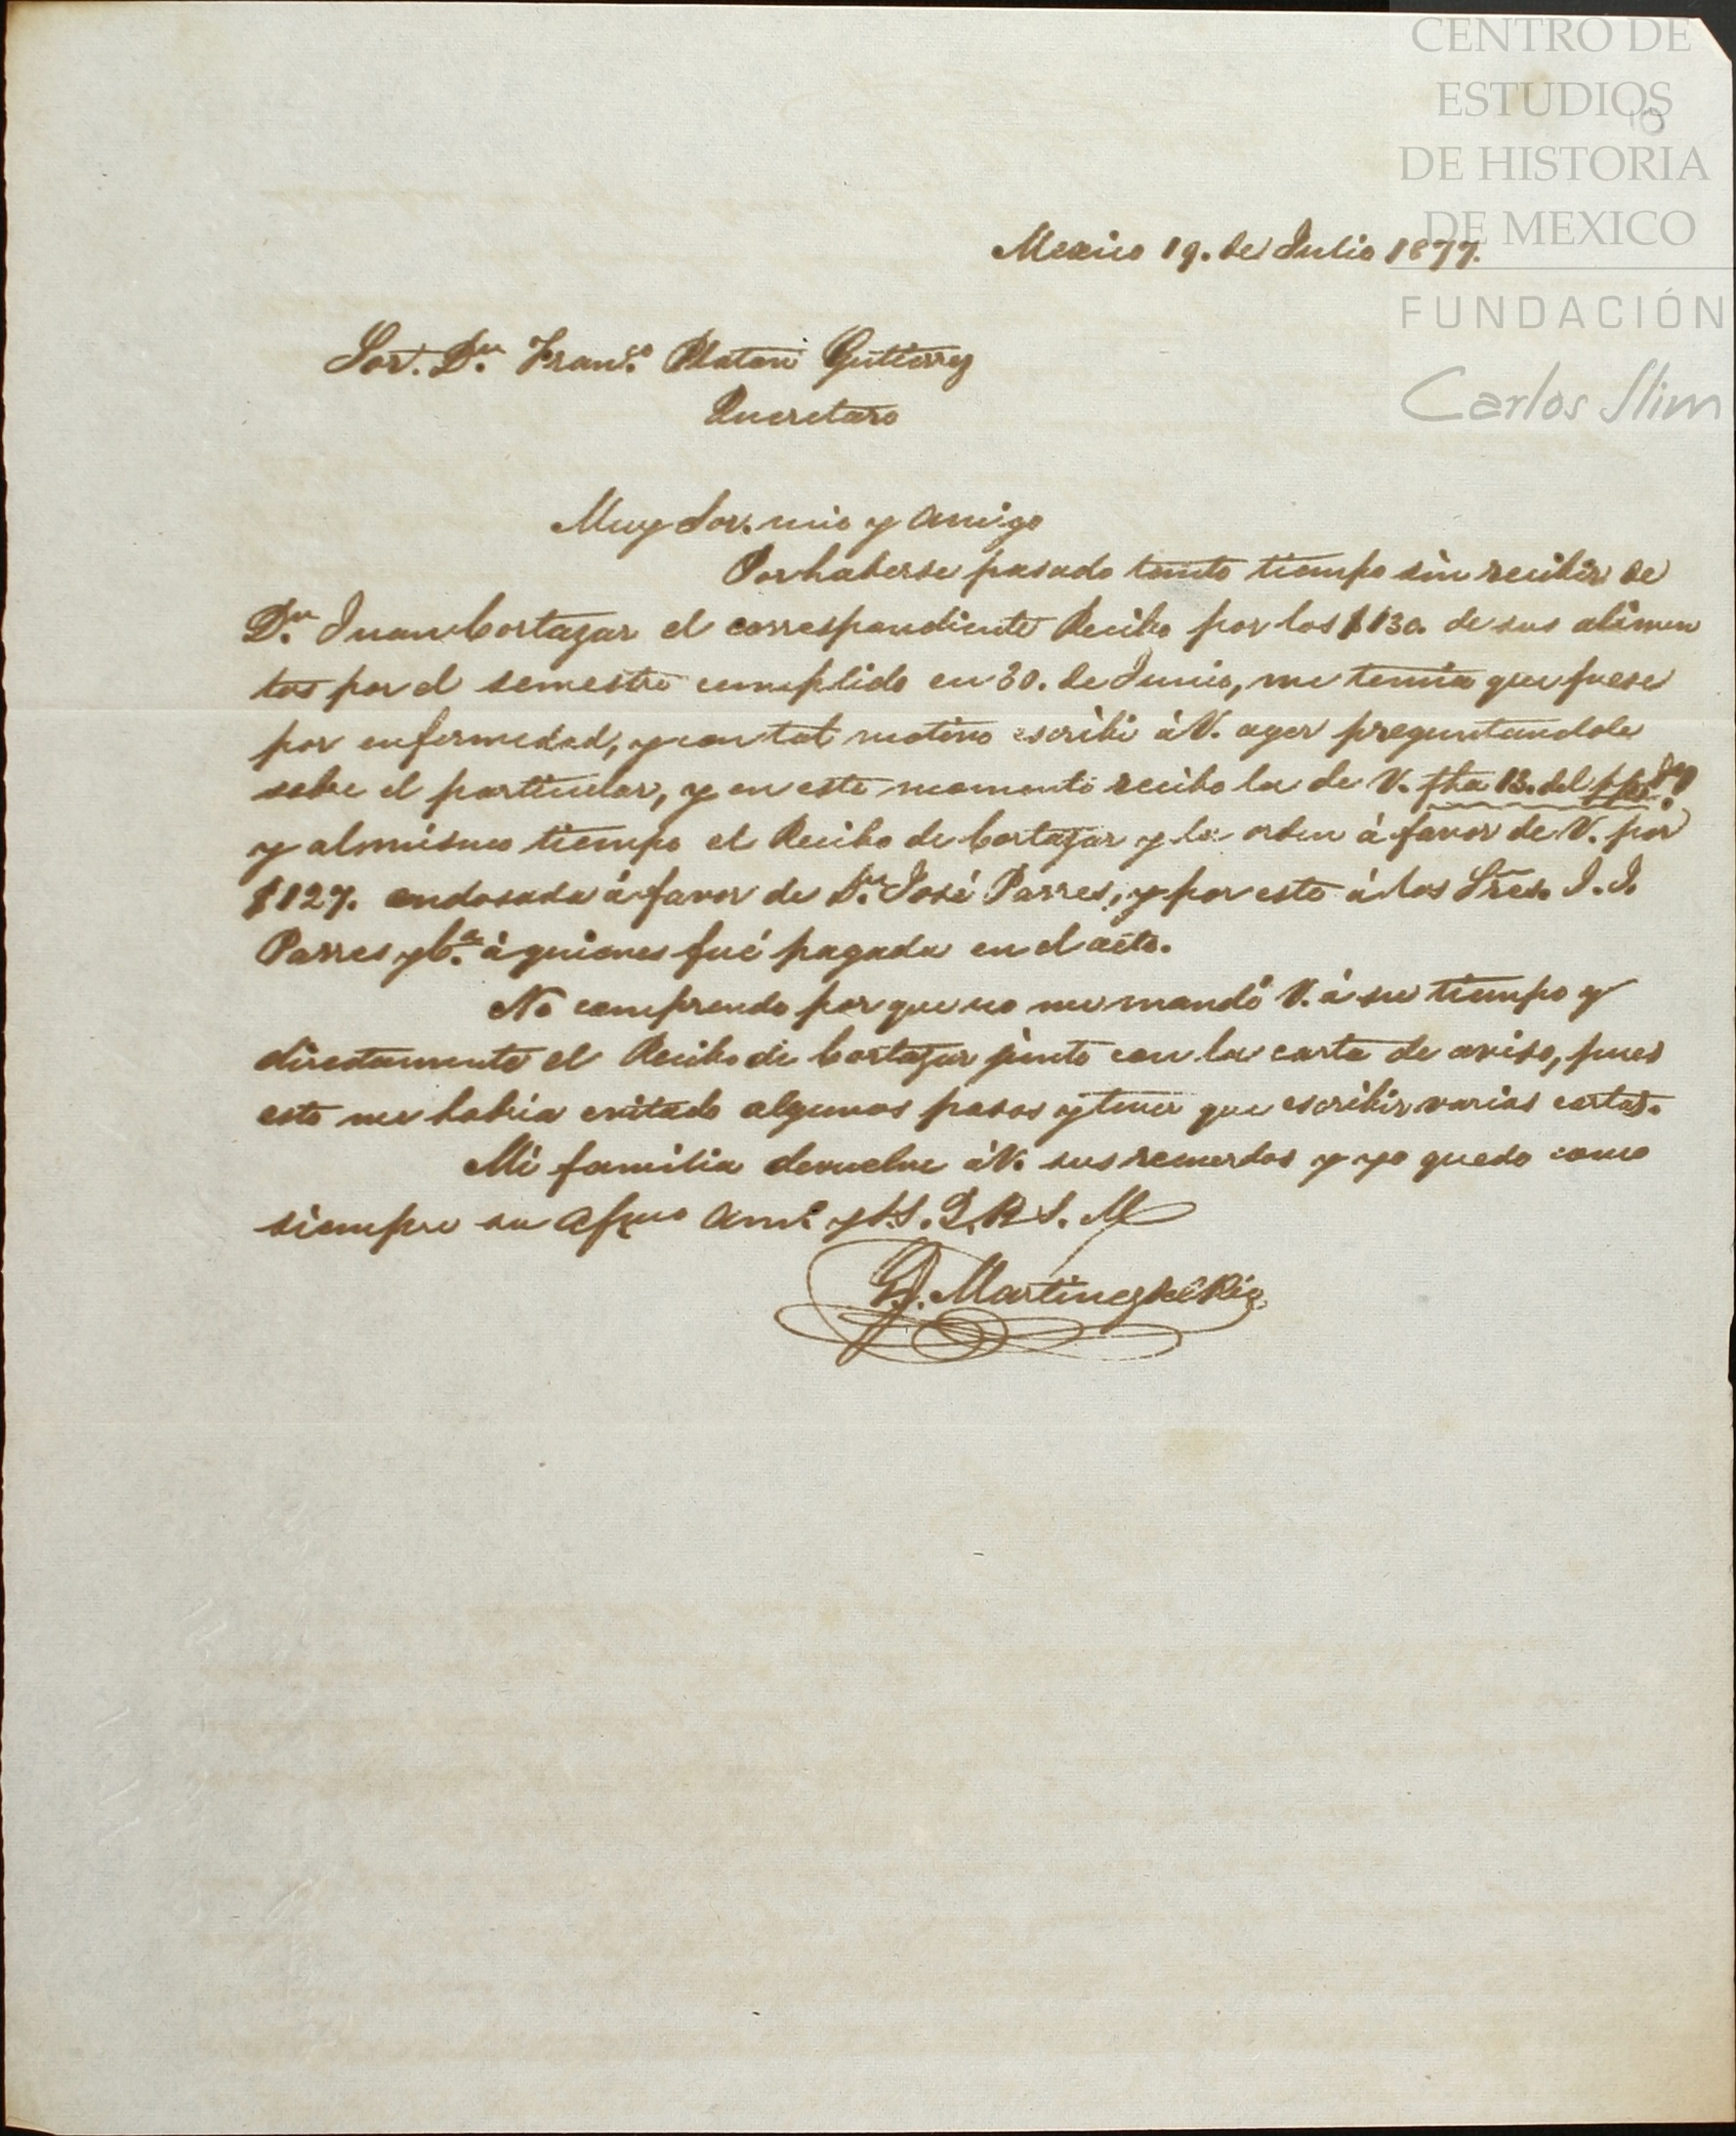 CENTRO DE
ESTUDIOS
16
DE HISTORIA
DE MEXICO
Mexico 19. de Julio 1877.
FUNDACIÓN
Sor. Dn. Franco. Platon Gutierrez
Carlos Slim
Queretaro
Muy Sor. mio y amigo
Por haberse pasado tanto tiempo sin recibir de
Dn. Juan Cortazar el correspondiente Recibo por los $130. de sus alimen
tos por el semestre cumplido en 30. de Junio, me temia que fuese
por enfermedad, y con tal motivo escribi á V. ayer preguntandole
sobre el particular, y en este momento recibo la de V. fha 13. del
y al mismo tiempo el Recibo de Cortazar y la orden á favor de V. por
$127. endosada á favor de Dn. José Parres, y por este á los Sres. J. J.
Parres y Ca. á quienes fué pagada en el acto.
No comprendo por que no me mandó V. á su tiempo y
directamente el Recibo de Cortazar junto con la carta de aviso, pues
esto me habria evitado algunos pasos y tener que escribir varias cartas.
Mi familia devuelve á V. sus recuerdos y yo quedo como
siempre su afmo amo. y S.S. Q. B. S. M
Martinez del Rio